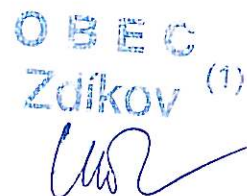 OBEC
Zdíkov (1)